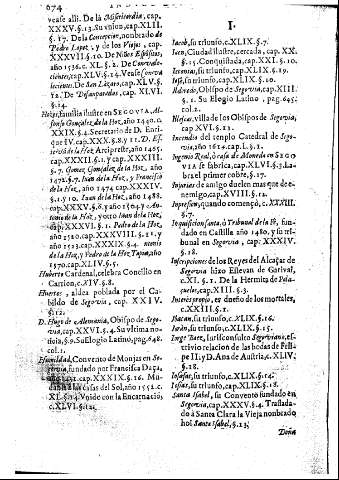 674
vease alli. De la Misericordia, cap.
XXXV.§.13. Su union, cap. XLII.
§.17. De la Concepcion, nombrado de
Pedro Lopez, y de los Viejos, cap.
XXXVIII.§.10. De Niños Expositos,
año 1536.c.XL.§.2. De Convale-
cientes, cap.XLV.§.14. Vease Conva-
lecientes. De San Lazaro, cap.XLV.§.
12. De Desamparados, cap.XLVI.
§.14.
Hozes, familia ilustre en SEGOVIA, Al-
fonso Gonçalez de la Hoz, año 1440.c.
XXIX.§.4. Secretario de D. Enri-
que IV. cap.XXX.§.8.y 11. D.
de la Hoz Arcipreste, año 1465.
cap.XXXII.§.1. y cap.XXXIII.
§.7. Gomez Gonçalez de la Hoz, año
1472.§.7. Iuan de la Hoz, y Francisco
de la Hoz, año 1474.cap.XXXIV.
§.1. y 10. Iuan de la Hoz, año 1488.
cap.XXXV.§.8. año 1504. y An-
tonio de la Hoz, y otro Iuan de la Hoz,
cap.XXXVI.§.1. Pedro de la Hoz,
año 1510.cap.XXXVIII.§.1. y
año 1523.cap.XXXIX.§.4. Antonio
de la Hoz, y Pedro de la Hoz Tapia, año
1570.cap.XLIV.§.5.
Huberto Cardenal, celebra Concilio en
Carrion, c.XIV.§.8.
Huertos, aldea poblada por el Ca-
bildo de Segovia, cap. XXIV.
§.12.
D. Hugo de Alemania, Obispo de Sego-
via, cap.XXVI.§.4. Su vltima no-
ticia, §.9. Su Elogio Latino, pag.648.
col.1.
Humildad, Convento de Monjas en Se-
govia, fundado por Francisca Daça,
cap.XXXIX.§.16. Mu-
casas del Sol, año 1552.c.
XL.§.14. Vnido con la Encarnació,
c.XLVI.§.12.
I.
Iacob, su triunfo, c.XLIX.§.7.
Iaen, Ciudad ilustre, cercada, cap.XX.
§.15. Conquistada, cap.XXI.§.10.
Ieremias, su triunfo, cap.XLIX.§.19.
Iesé, su triunfo, cap.XLIX.§.10.
Ildmedo, Obispo de Segovia, cap.III.
§.1. Su Elogio Latino, pag.645.
col.2.
Illescas, villa de los Obispos de Segovia,
cap.XVI.§.21.
Incendio del templo Catedral de Sego-
via, año 1614.cap.L.§.1.
Ingenio Real, ò casa de Moneda en SEGO
VIA se fabrica, cap.XLVI.§.3. La-
bra el primer cobre, §.17.
Injurias de amigo duelen mas que de e-
nemigo, cap.XVIII.§.12.
Impression, quando començó, c.XXXIII.
§.7.
Inquisicion santa, ò Tribunal de la Fè, fun-
dado en Castilla año 1480. y su tri-
bunal en Segovia, cap. XXXIV.
§.18.
Inscripciones de los Reyes del Alcaçar de
Segovia hizo Estevan de Garivai,
c.XI.§.1. De la Hermita de Pala-
çuelos, cap.XIII.§.3.
Interès propio, es dueño de los mortales,
c.XXIII.§.1.
Ioacan, su triunfo, c.XLIX.§.16.
Iorán, su triunfo, c.XLIX.§.15.
Iorge Baez, Iurisconsulto Segoviano, es-
crivio relacion de las bodas de Feli-
pe II. y D. Ana de Austria, c.XLIV.
§.18.
Iosafat, su triunfo, c.XLIX.§.14.
Iosias, su triunfo, cap.XLIX.§.18.
Santa Isabel, su Convento fundado en
Segovia, cap.XXXV.§.4. Traslada-
dò à Santa Clara la Vieja nombrado
hoi Santa Isabel, §.13.
Doña